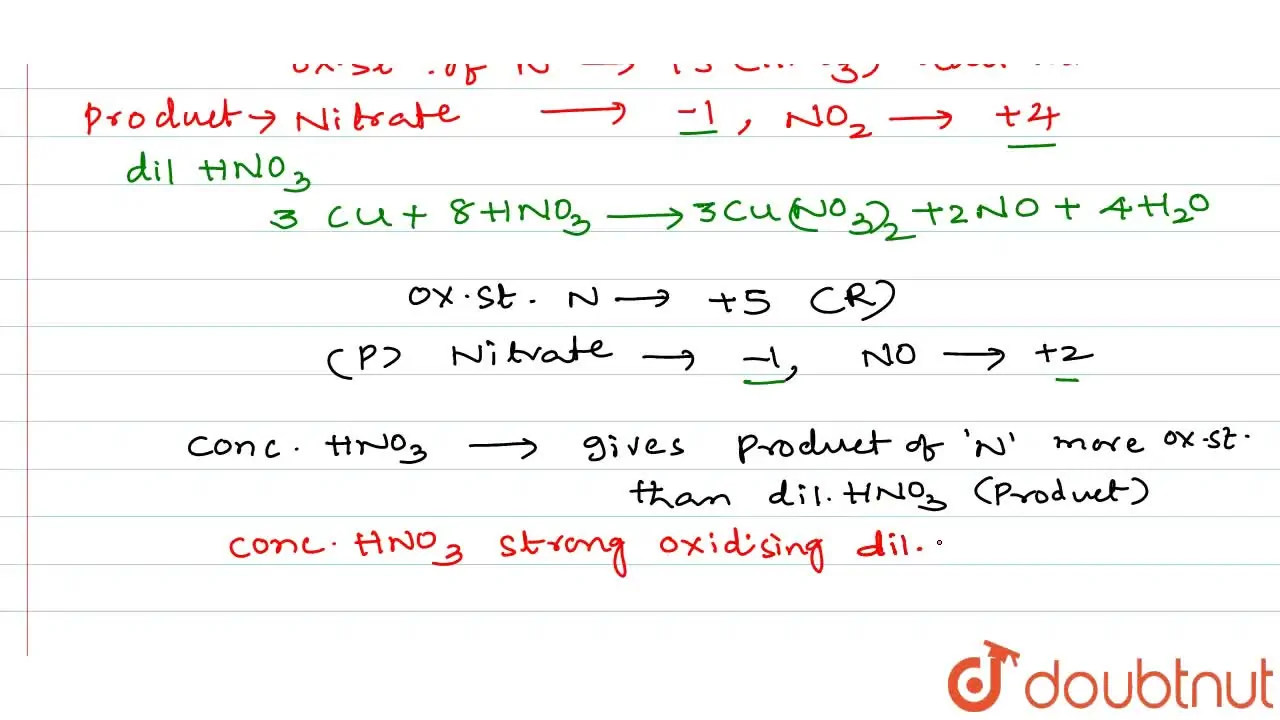 ox.st. of N →
Product → Nitrate → -1, NO₂ → +4
dil HNO₃
3 Cu + 8HNO₃ → 3Cu(NO₃)₂ + 2NO + 4H₂O
ox.st. N → +5 (R)
(P) Nitrate → -1, NO → +2
Conc. HNO₃ → gives Product of 'N' more ox.st.
than dil. HNO₃ (Product)
Conc. HNO₃ strong oxidising dil.
doubtnut